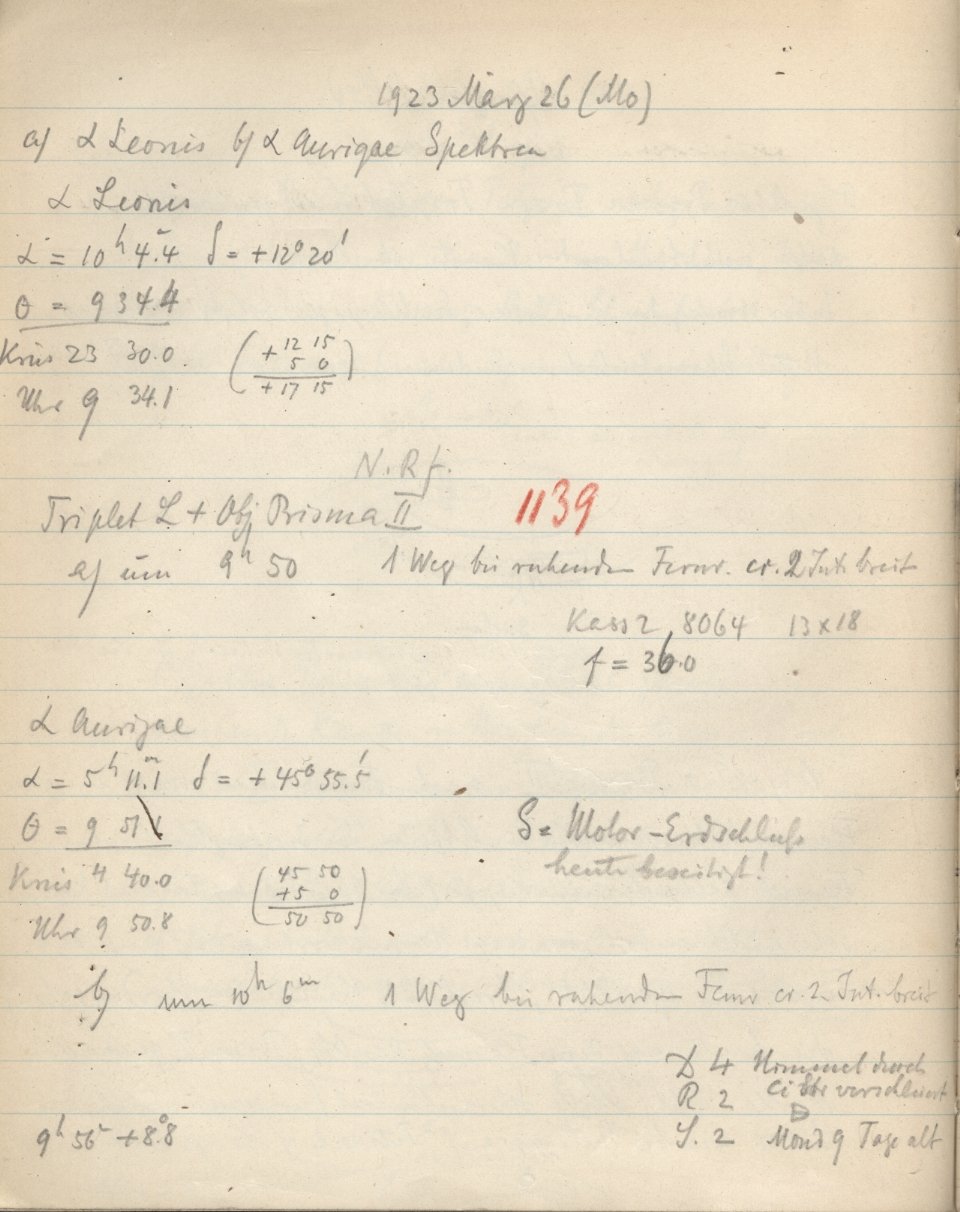 1923 März 26 (Mo)
a) α Leonis b) α Aurigae Spektren
α Leonis
α = 10ʰ 4ᵐ.4 δ = +12° 20'
θ = 9 34.4
Kreis 23 30.0
(+12 15
5 0
+17 15)
Uhr 9 34.1
N. Rf.
Triplet L + Obj Prisma II 1139
a) um 9ʰ 50 1 Weg bei ruhendem Fernr. cr. 2 Int. breit
Kass 2, 8064 13x18
f = 36.0
α Aurigae
α = 5ʰ 11ᵐ.1 δ = +45° 55'.5
θ = 9 51
Kreis 4 40.0
(45 50
+5 0
50 50)
Uhr 9 50.8
S = Motor-Erdschluß
heute beseitigt!
b) um 10ʰ 6ᵐ 1 Weg bei ruhendem Fernr cr. 2 Int. breit
D 4 Himmel durch
R 2 ci Str verschleiert
S. 2 Mond 9 Tage alt
9ʰ 56ᵐ +8°.8